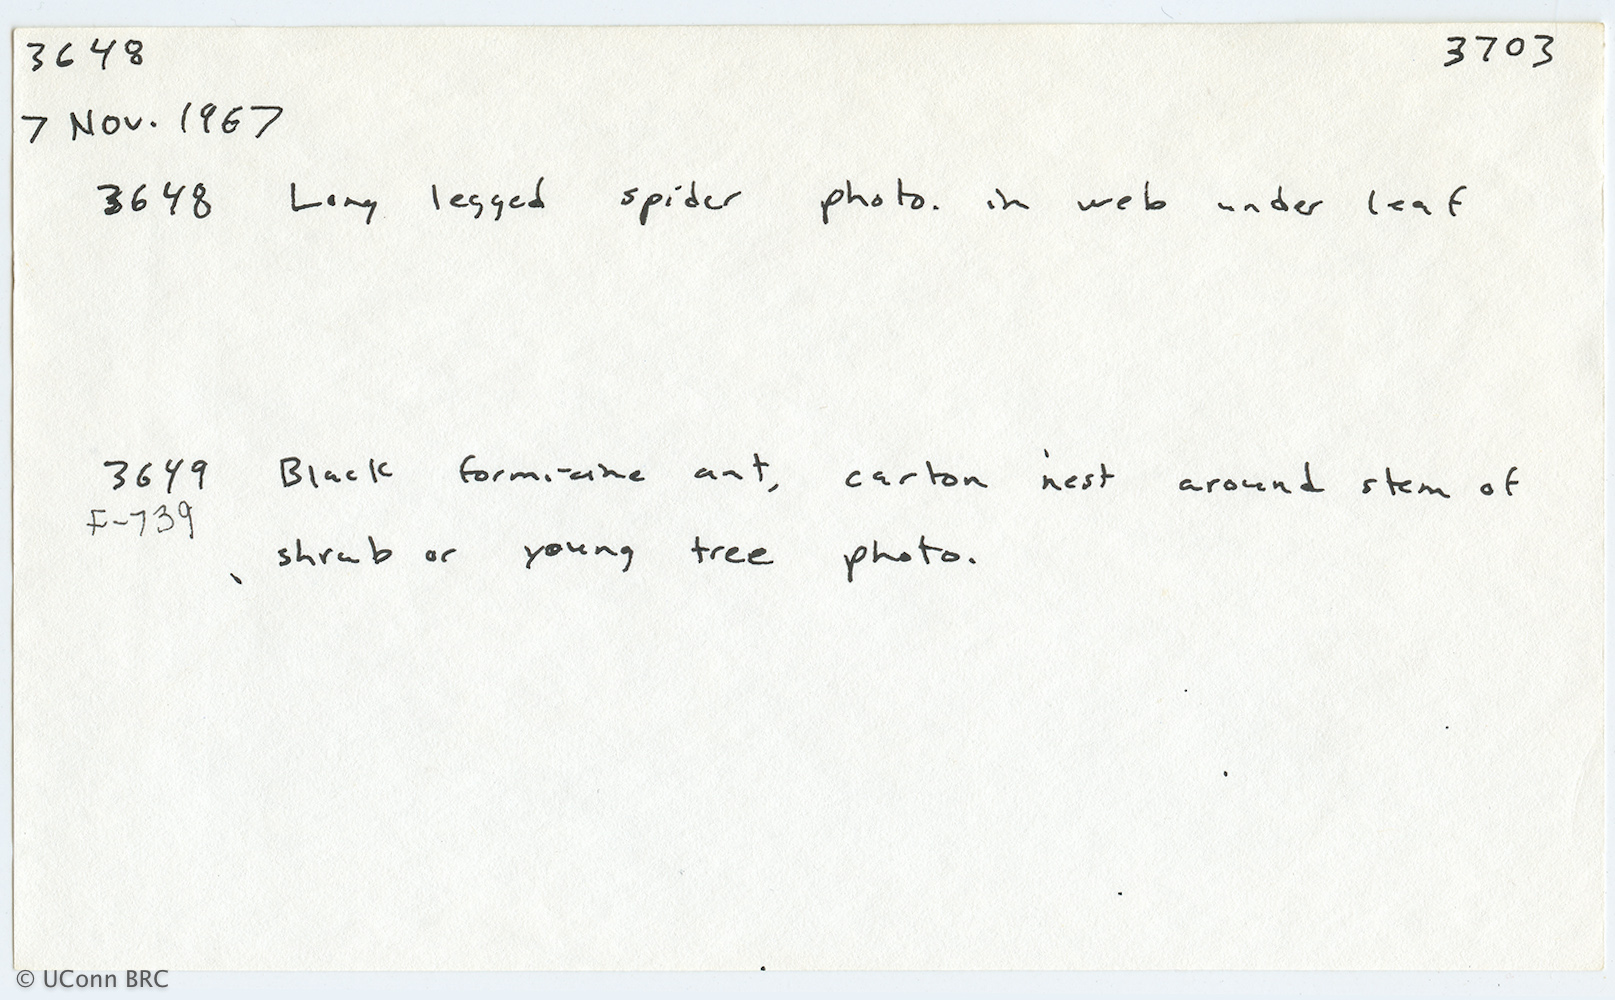 3648 3703
7 Nov. 1967
3648 Long legged spider photo. in web under leaf
3649 Black formicine ant, carton nest around stem of
F-739
shrub or young tree photo.
© UConn BRC